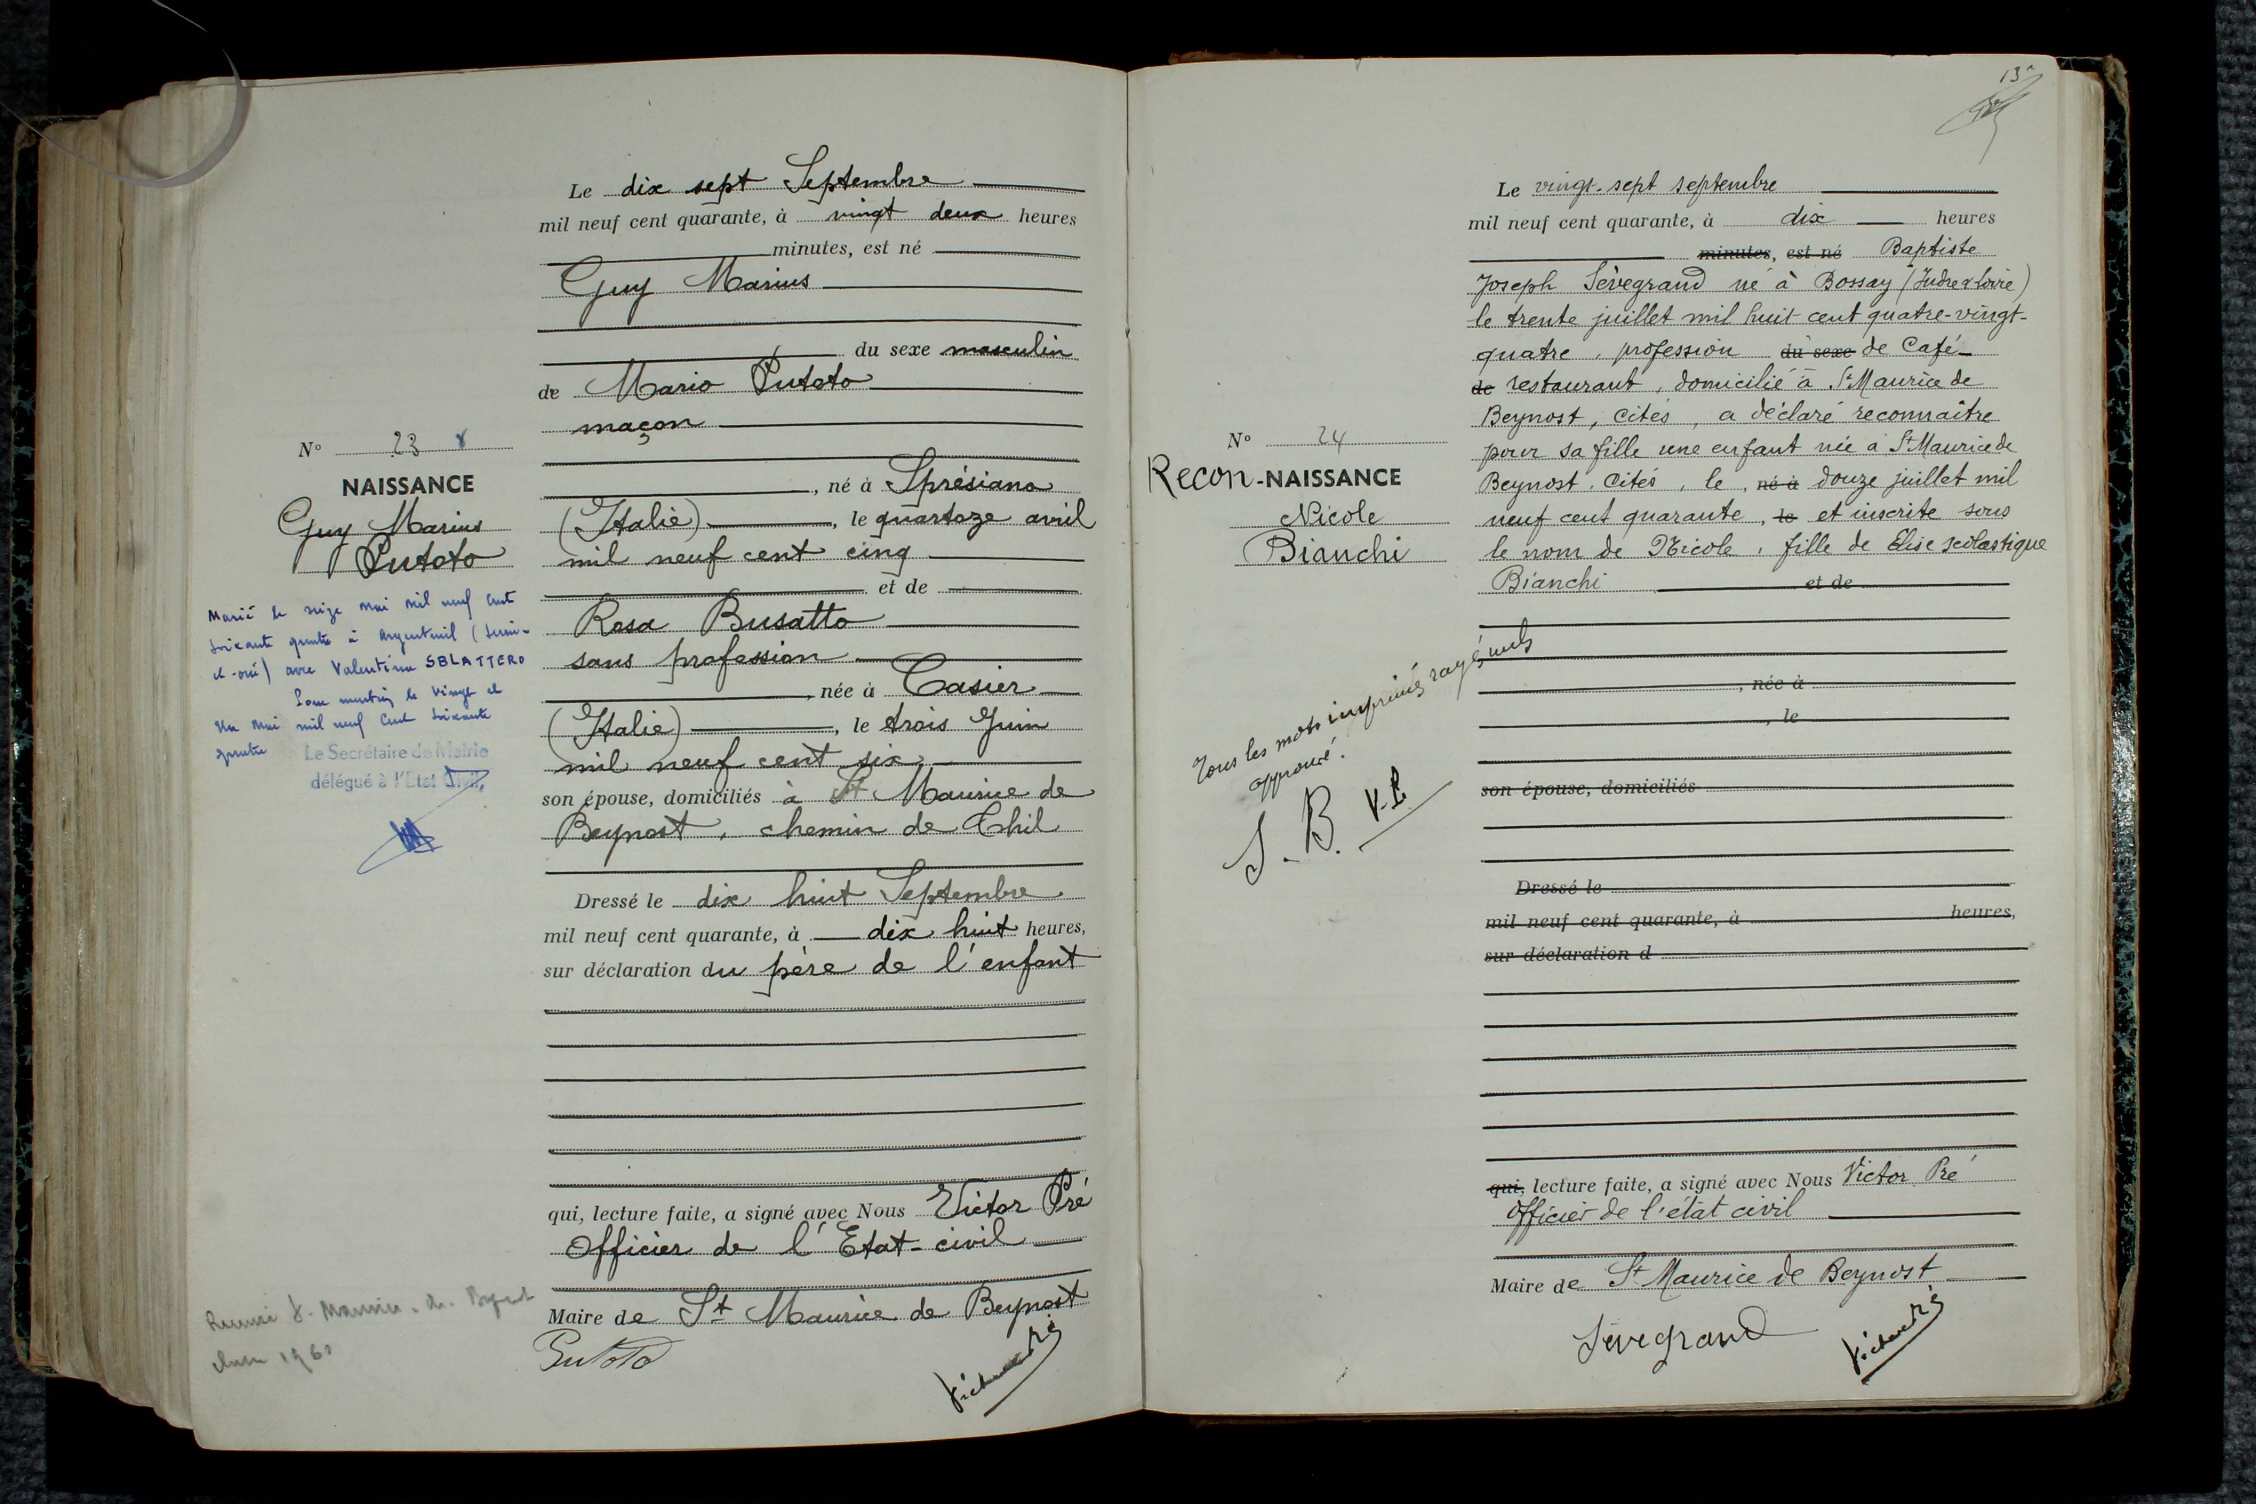 Le dix sept Septembre
mil neuf cent quarante, à vingt deux heures
minutes, est né
Guy Marius
du sexe masculin
de Mario Putoto
maçon
, né à Sprésiano
(Italie), le quartoze avril
mil neuf cent cinq
et de
Rosa Busatto
sans profession
, née à Casier
(Italie), le trois Juin
mil neuf cent six
son épouse, domiciliés à St Maurice de
Beynost, chemin de Thil
Dressé le dix huit Septembre
mil neuf cent quarante, à dix huit heures,
sur déclaration du père de l'enfant
qui, lecture faite, a signé avec Nous Victor Pré
Officier de l'Etat-civil
Maire de St Maurice de Beynost
Putoto
Victor Pré
N° 23
NAISSANCE
Guy Marius
Putoto
Marié le seize mai mil neuf cent
soixante quatre à Argenteuil (Seine-
et-oise) avec Valentina SBLATTERO
Pour mention le vingt et
un mai mil neuf cent soixante
quatre
Le Secrétaire de Mairie
délégué à l'Etat Civil,
St. Maurice. de. Beynost
13
Le vingt-sept septembre
mil neuf cent quarante, à dix heures
minutes, est né Baptiste
Joseph Sèvegrand né à Bossay (Indre & Loire)
le trente juillet mil huit cent quatre-vingt-
quatre, profession du sexe de Café-
de restaurant, domicilié à St Maurice de
Beynost, cités, a déclaré reconnaître
pour sa fille une enfant née à St Maurice de
Beynost, Cités, le, né à douze juillet mil
neuf cent quarante, le et inscrite sous
le nom de Nicole, fille de Elise Scolastique
Bianchi et de
, née à
, le
son épouse, domiciliés
Dressé le
mil neuf cent quarante, à heures,
sur déclaration d
qui, lecture faite, a signé avec Nous Victor Pré
Officier de l'état civil
Maire de St Maurice de Beynost
Sèvegrand
Victor Pré
N° 24
Recon-NAISSANCE
Nicole
Bianchi
Tous les mots imprimés rayés nuls
approuvé.
S. B. V-P